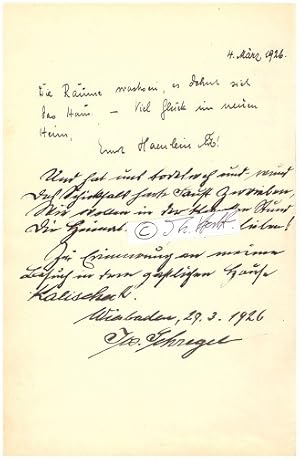 4. März 1926.
Die Räume wachsen, es dehnt sich
das Haus. – Viel Glück im neuen
Heim,
Ernst Haenlein
Und hat uns und
Des Schicksals harte Faust
Wir wollen in der Stund
Die Heimat lieben!
Zur Erinnerung an meinen
Besuch in dem gastlichen Hause
Kalischek.
Wiesbaden, 29.3. 1926
Jos. Schregel